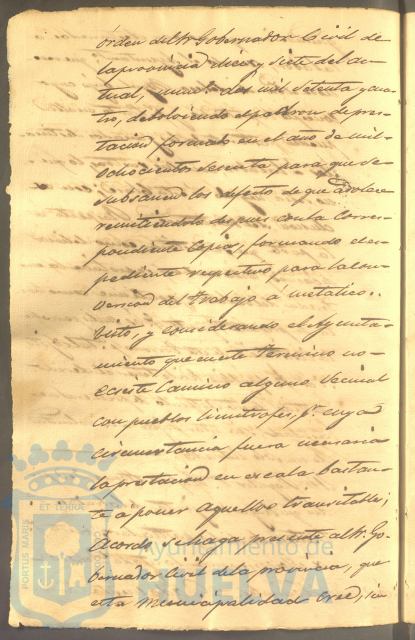 órden del Sr Gobernador Civil de
la provincia diez y siete del ac-
tual, numero dos mil setenta y cua-
tro, debolviendo el padron de pres-
tacion formado en el año de mil
ochocientos sesenta para que se
subsanen los defectos de que adolece
remitiendolo despues con la Corres-
pondiente Copia, formando el es-
pediente respectivo para la con-
version del trabajo á metalico.
Visto, y considerando el Ayunta-
miento que en este termino no
existe Camino alguno Vecinal
con pueblos limitrofes, pr cuya
circunstancia fuera necesaria
la prestacion en escala bastan-
te a poner aquellos transitables;
Acordó se haga presente al Sr Go-
bernador Civil de la provincia, que
esta Municipalidad cree, sin
PORTUS MARIS
ET TERRAE
Ayuntamiento de
HUELVA